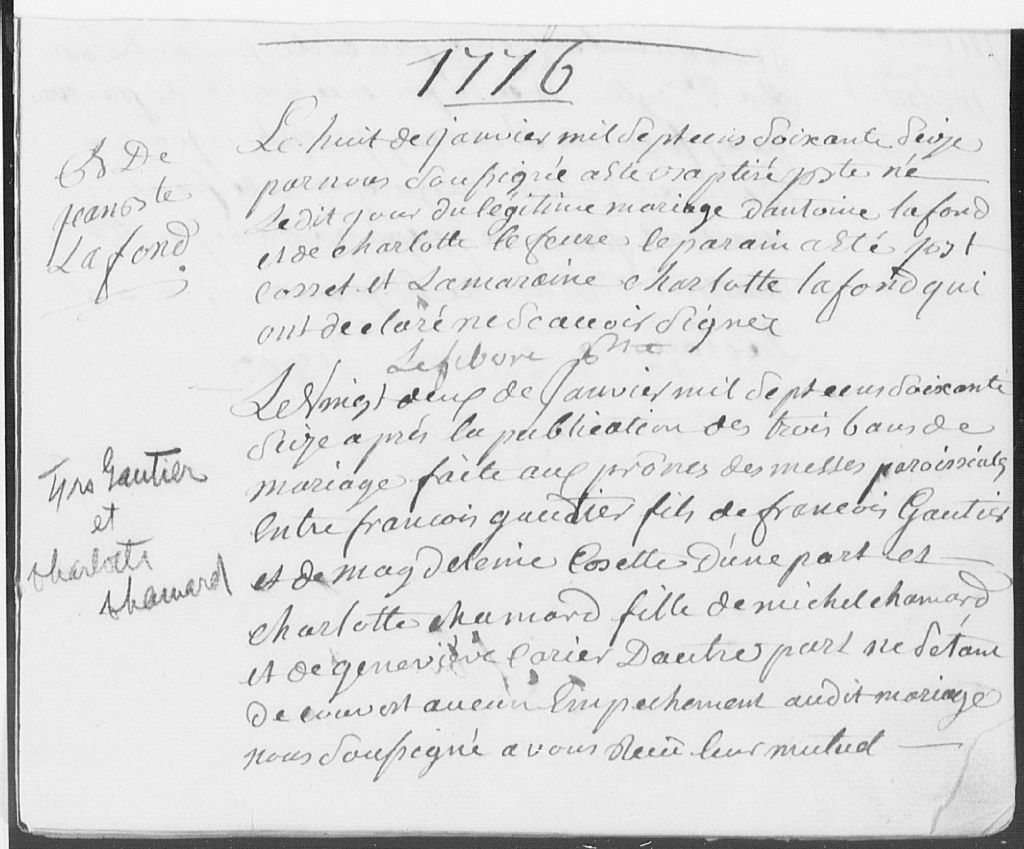 1776
B De
jean Bte
Lafond
Le huit de janvier mil Septcens Soixante Seize
par nous Soussigné a été baptisé jbte né
Ledit jour du légitime mariage d'antoine lafond
et de charlotte lefeure le parain a été jbt
cosset et La maraine charlotte lafond qui
ont declaré ne Scavoir Signer
Lefebvre ptre
Le Vingt deux de Janvier mil Septcens Soixante
Seize après la publication des trois bans de
mariage faite aux prônes des messes paroissiales
Entre francois gautier fils de francois Gautier
et de magdeleine Cosette D'une part et
charlotte chamard fille de michel chamard
et de geneviève Carier Dautre part ne S'étant
decouvert aucun Empechement audit mariage
nous Soussigné avons Reçû leur mutuel
frs Gautier
et
charlotte
chamard